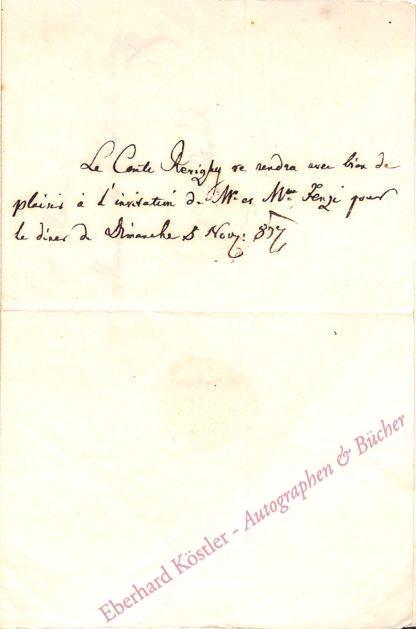 Le Comte Rerighy se rendra avec bien de
plaisir à l'invitation de Mr et Mme Fenzi pour
le diner de Dimanche 5 Nov: 837
Eberhard Köstler - Autographen & Bücher